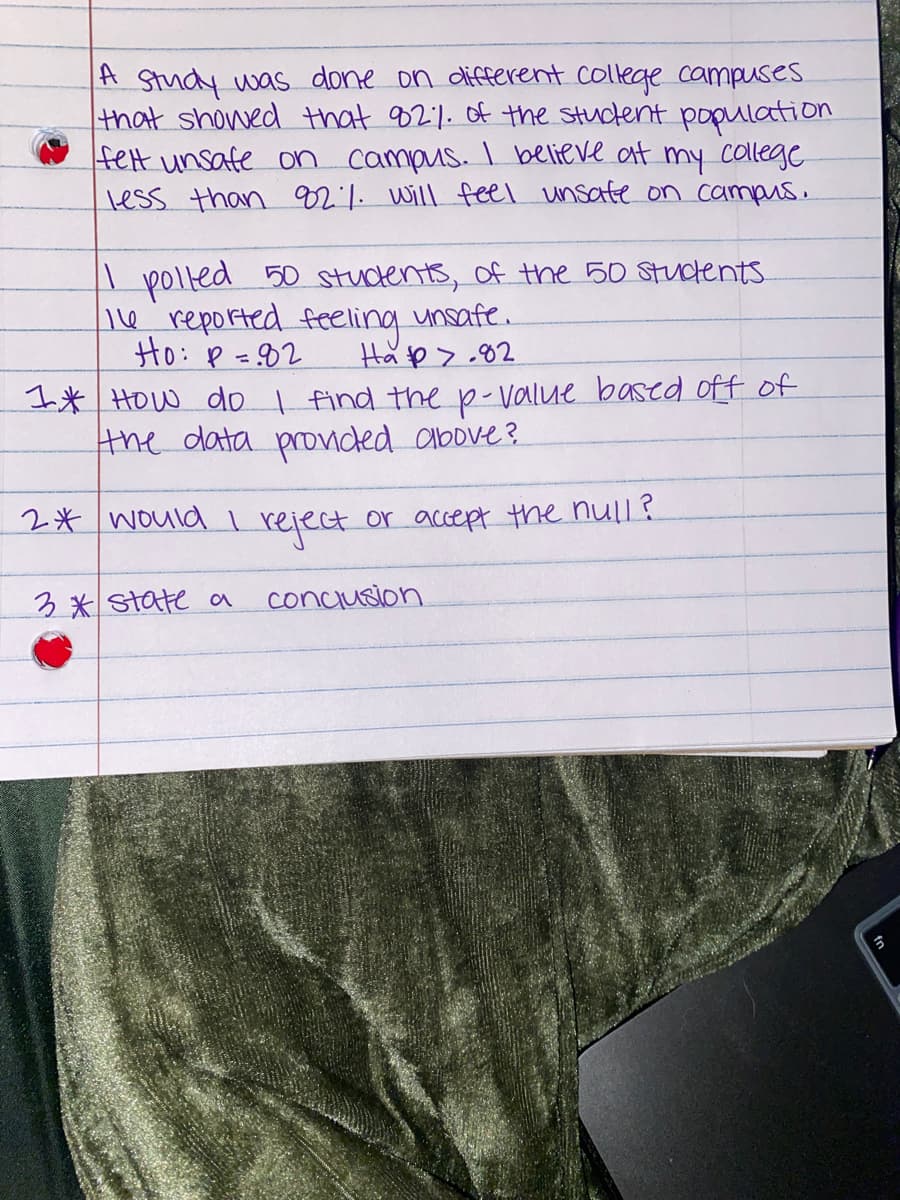 A study was done on different college campuses
that showed that 82%. of the student population
felt unsafe on campus. I believe at my college
less than 82%. will feel unsafe on campus.
I polled 50 students, of the 50 students
16 reported feeling unsafe.
Ho: p = .82 Ha p > .82
1* How do I find the p-value based off of
the data provided above?
2* would I reject or accept the null?
3 * state a conclusion
fn